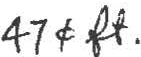 47¢ ft.